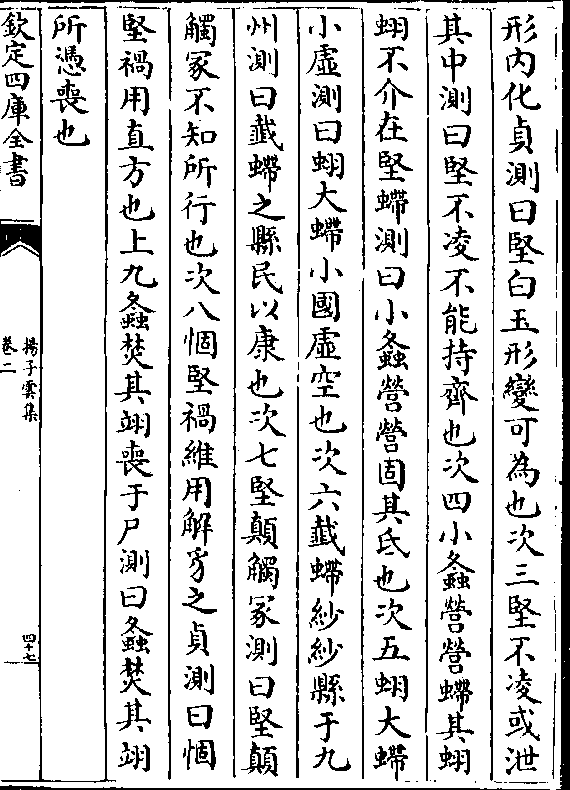 形內化貞測曰堅白玉形變可為也次三堅不凌或泄
其中測曰堅不凌不能持齊也次四小螽營營蟦其蛡
蛡不介在堅蟦測曰小螽營營固其氐也次五蛡大蟦
小虛測曰蛡大蟦小國虛空也次六韱蟦紗紗縣于九
州測曰韱蟦之縣民以康也次七堅顛觸冢測曰堅顛
觸冢不知所行也次八恛堅禍維用解豸之貞測曰恛
堅禍用直方也上九螽焚其翊喪于尸測曰螽焚其翊
所憑喪也
欽定四庫全書
揚子雲集
卷二
四十七